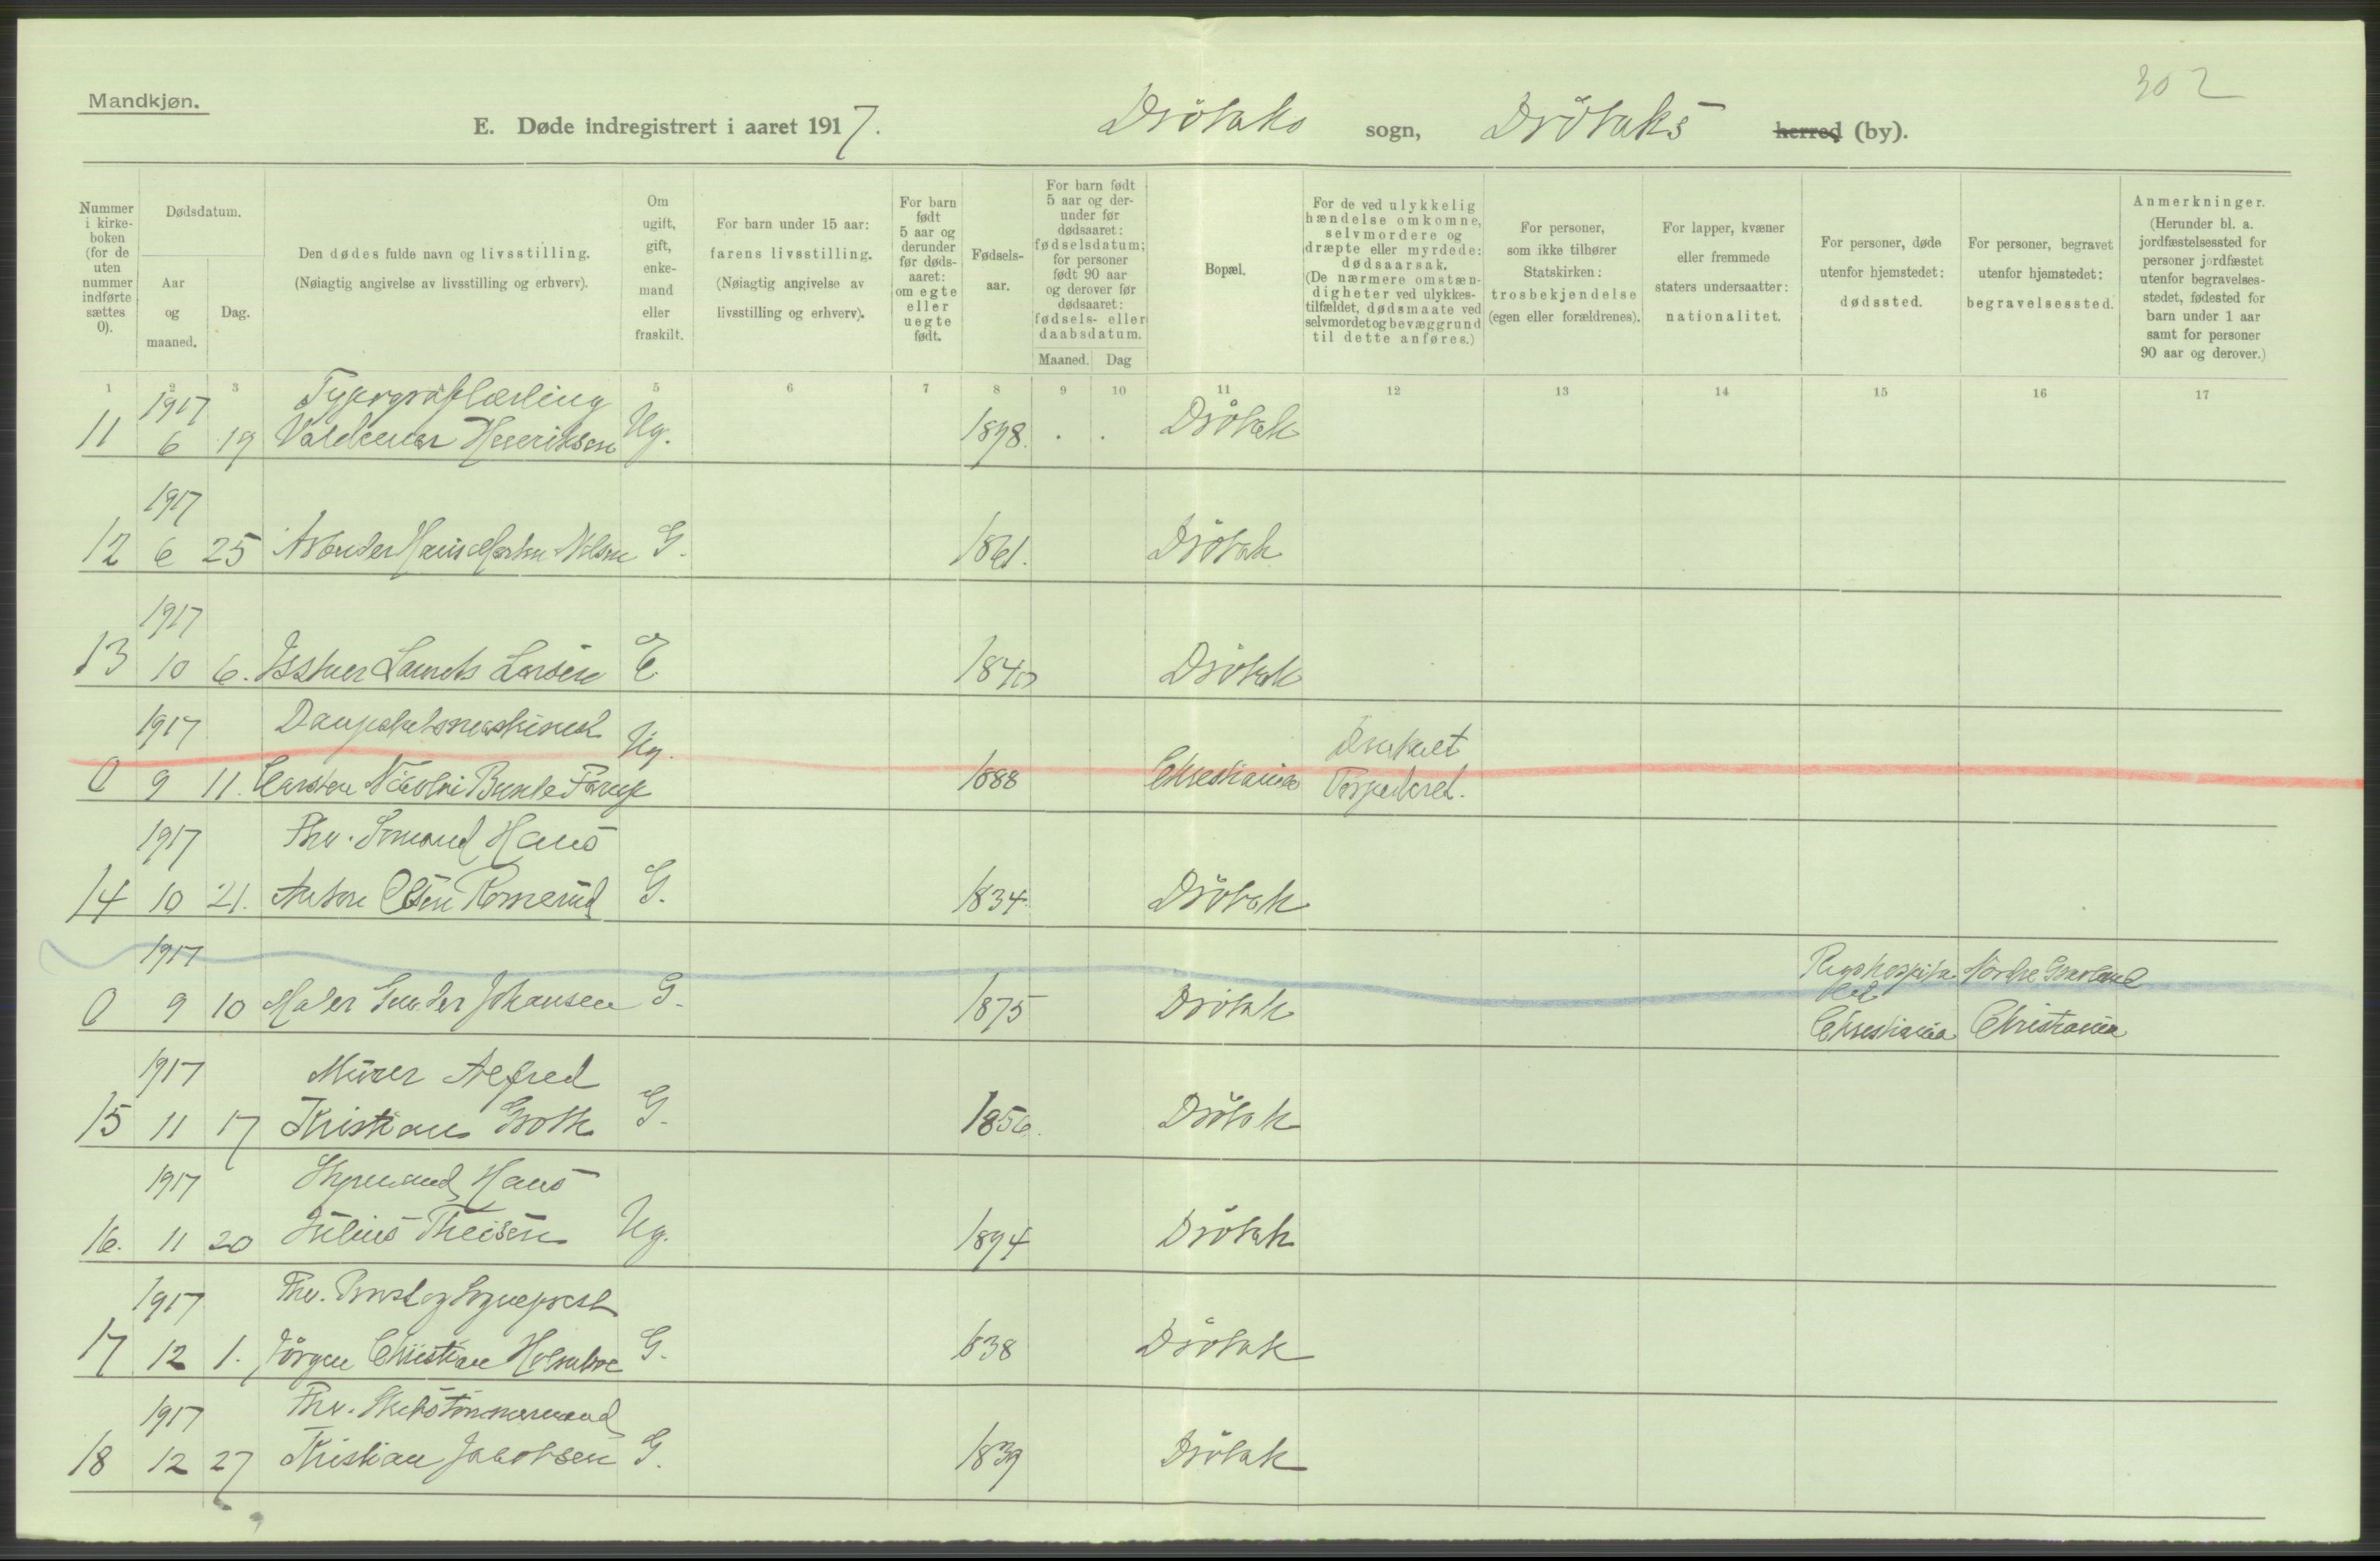 302
Mandkjøn.
E. Døde indregistrert i aaret 1917. Drøbaks sogn, Drøbaks herred (by).
Nummer i kirkeboken (for de uten nummer indførte sættes 0).
Dødsdatum.
Aar og maaned.
Dag.
Den dødes fulde navn og livsstilling. (Nøiagtig angivelse av livsstilling og erhverv).
Om ugift, gift, enkemand eller fraskilt.
For barn under 15 aar: farens livsstilling. (Nøiagtig angivelse av livsstilling og erhverv).
For barn født 5 aar og derunder før dødsaaret: om egte eller uegte født.
Fødselsaar.
For barn født 5 aar og derunder før dødsaaret: fødselsdatum; for personer født 90 aar og derover før dødsaaret: fødsels- eller daabsdatum.
Maaned. Dag
Bopæl.
For de ved ulykkelig hændelse omkomne, selvmordere og dræpte eller myrdede: dødsaarsak. (De nærmere omstændigheter ved ulykkestilfældet, dødsmaate ved selvmordet og bevæggrund til dette anføres.)
For personer, som ikke tilhører Statskirken: trosbekjendelse (egen eller forældrenes).
For lapper, kvæner eller fremmede staters undersaatter: nationalitet.
For personer, døde utenfor hjemstedet: dødssted.
For personer, begravet utenfor hjemstedet: begravelsessted.
Anmerkninger. (Herunder bl. a. jordfæstelsessted for personer jordfæstet utenfor begravelsesstedet, fødested for barn under 1 aar samt for personer 90 aar og derover.)
1 2 3 5 6 7 8 9 10 11 12 13 14 15 16 17
1917 Typograflærling
11 6 19 Valdemar Henriksen Ug. 1898. Drøbak
1917
12 6 25 Arbeider Hans Morten Nilsen G. 1861. Drøbak
1917
13 10 6. Larsen E 1840 Drøbak
1917 Dampskibsmaskinist Ug. Druknet
0 9 11. Carsten Nicolai Bunke Farup 1888 Christiania Torpederet.
1917 Fhv. Formand Hans
14 10 21. Anton Olsen Romerud G. 1834 Drøbak
1917 Rigshospita- Nordre Gravlund
0 9 10 Maler Gunder Johansen G. 1875 Drøbak let
Christiania Christiania
1917 Murer Alfred
15 11 17 Kristian Groth G. 1856. Drøbak
1917 Styrmand Hans
16. 11 20 Julius Theisen Ug. 1894 Drøbak
1917 Fhv. Provst og Sogneprest
17 12 1. Jørgen Christian Holmboe G. 1838 Drøbak
1917 Fhv. Skibstømmermand
18 12 27 Kristian Jakobsen G. 1839 Drøbak